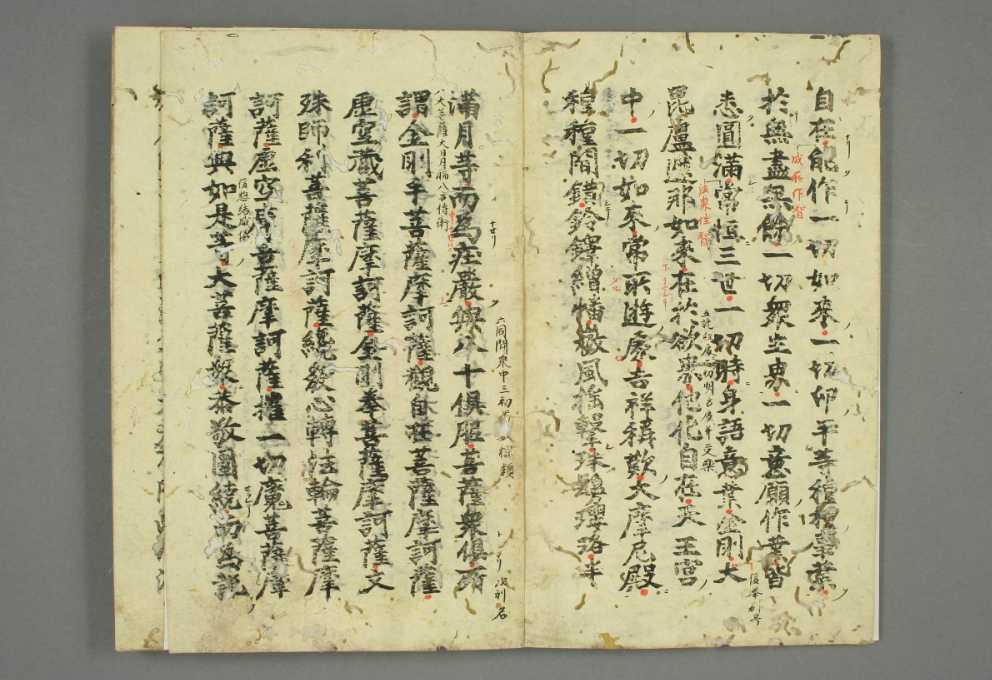 自在能作一切如來一切印平等種種事業
於無盡無餘一切衆生界一切意願作業皆
悉圓滿常恒三世一切時身語意業金剛大
毘盧遮那如來在於欲界他化自在天王宮
中一切如來常所遊處吉祥稱歎大摩尼殿
種種間錯鈴鐸繒幡微風搖擊珠鬘瓔珞半
滿月等而為莊嚴與八十俱胝菩薩衆俱所
謂金剛手菩薩摩訶薩觀自在菩薩摩訶薩
虛空藏菩薩摩訶薩金剛拳菩薩摩訶薩文
殊師利菩薩摩訶薩纔發心轉法輪菩薩摩
訶薩虛空庫菩薩摩訶薩摧一切魔菩薩摩
訶薩與如是等大菩薩衆恭敬圍繞而為說